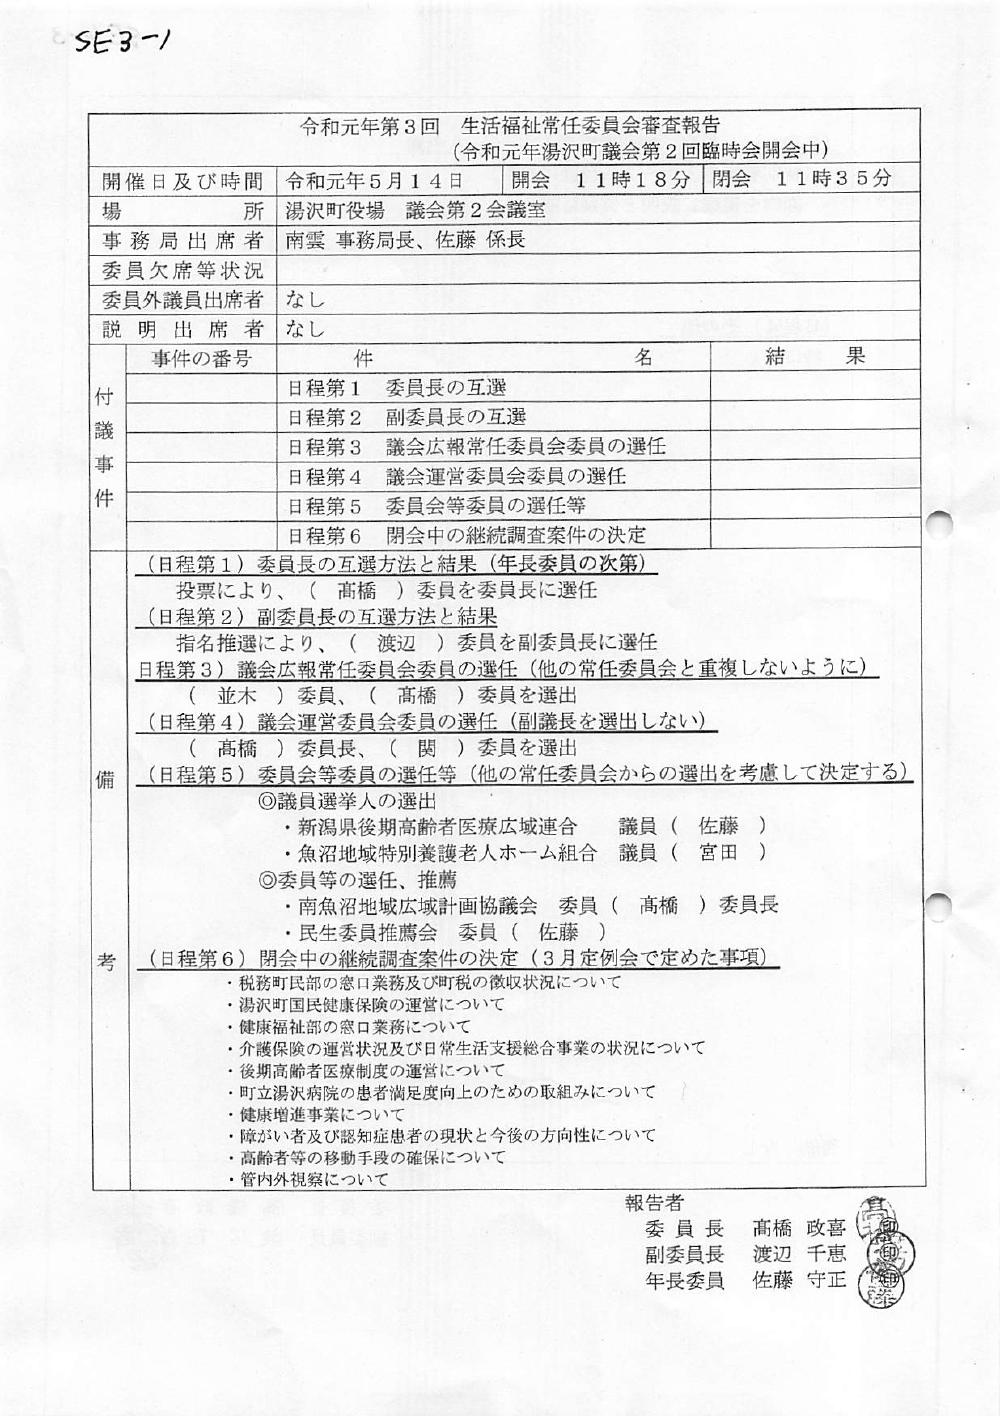 SE3-1
令和元年第3回　生活福祉常任委員会審査報告
（令和元年湯沢町議会第2回臨時会開会中）
開催日及び時間　令和元年5月14日　開会　11時18分　閉会　11時35分
場所　湯沢町役場　議会第2会議室
事務局出席者　南雲 事務局長、佐藤 係長
委員欠席等状況
委員外議員出席者　なし
説明出席者　なし
付議事件
事件の番号　件名　結果
日程第1　委員長の互選
日程第2　副委員長の互選
日程第3　議会広報常任委員会委員の選任
日程第4　議会運営委員会委員の選任
日程第5　委員会等委員の選任等
日程第6　閉会中の継続調査案件の決定
備考
（日程第1）委員長の互選方法と結果（年長委員の次第）
投票により、（　髙橋　）委員を委員長に選任
（日程第2）副委員長の互選方法と結果
指名推選により、（　渡辺　）委員を副委員長に選任
日程第3）議会広報常任委員会委員の選任（他の常任委員会と重複しないように）
（　並木　）委員、（　髙橋　）委員を選出
（日程第4）議会運営委員会委員の選任（副議長を選出しない）
（　髙橋　）委員長、（　関　）委員を選出
（日程第5）委員会等委員の選任等（他の常任委員会からの選出を考慮して決定する）
◎議員選挙人の選出
・新潟県後期高齢者医療広域連合　議員（　佐藤　）
・魚沼地域特別養護老人ホーム組合　議員（　宮田　）
◎委員等の選任、推薦
・南魚沼地域広域計画協議会　委員（　髙橋　）委員長
・民生委員推薦会　委員（　佐藤　）
（日程第6）閉会中の継続調査案件の決定（3月定例会で定めた事項）
・税務町民部の窓口業務及び町税の徴収状況について
・湯沢町国民健康保険の運営について
・健康福祉部の窓口業務について
・介護保険の運営状況及び日常生活支援総合事業の状況について
・後期高齢者医療制度の運営について
・町立湯沢病院の患者満足度向上のための取組みについて
・健康増進事業について
・障がい者及び認知症患者の現状と今後の方向性について
・高齢者等の移動手段の確保について
・管内外視察について
報告者
委員長　髙橋 政喜 ㊞
副委員長　渡辺 千恵 ㊞
年長委員　佐藤 守正 ㊞